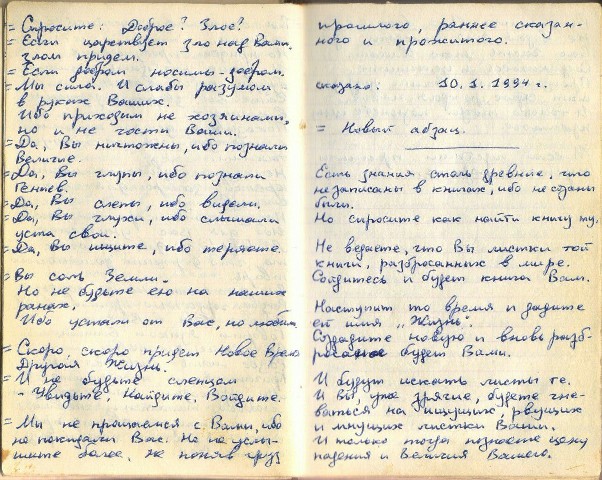 = Спросите: Доброе? Злое?
= Если царствует зло над Вами,
злом придем.
= Если добром носимы - добром.
= Мы сила. И слабы разумом
в руках Ваших.
Ибо приходим не хозяинами,
но и не гости Ваши.
= Да, Вы ничтожены, ибо познали
Величие.
= Да, Вы глупы, ибо познали
Гениев.
= Да, Вы слепы, ибо видели.
= Да, Вы глухи, ибо слышали
уста свои.
= Да, Вы ищите, ибо теряете.
= Вы соль Земли.
Но не будьте ею на наших
ранах.
Ибо устали от Вас, но любим.
= Скоро, скоро придет Новое Время
Другая Жизнь.
= И не будьте слепцом
- Увидьте. Найдите. Войдите.
= Мы не прощаемся с Вами, ибо
не покидали Вас. Но не услы-
шите более, не поняв груз
прошлого, раннее сказан-
ного и прожитого.
сказано: 10.1.1994 г.
= Новый абзац.
Есть знания столь древние, что
не записаны в книгах, ибо не созданы
были.
Но спросите как найти книгу ту.
Не ведаете, что Вы листки той
книги, разбросанных в мире.
Сойдитесь и будет книга Вам.
Наступит то время и дадите
ей имя „Жизнь".
Создадите новую и вновь разб-
росаное будет Вами.
И будут искать листы те.
И Вы, уже зрячие, будете гне-
ваться на ищущих, рвущих
и мнущих листки Ваши.
И только тогда познаете цену
падения и Величия Вашего.